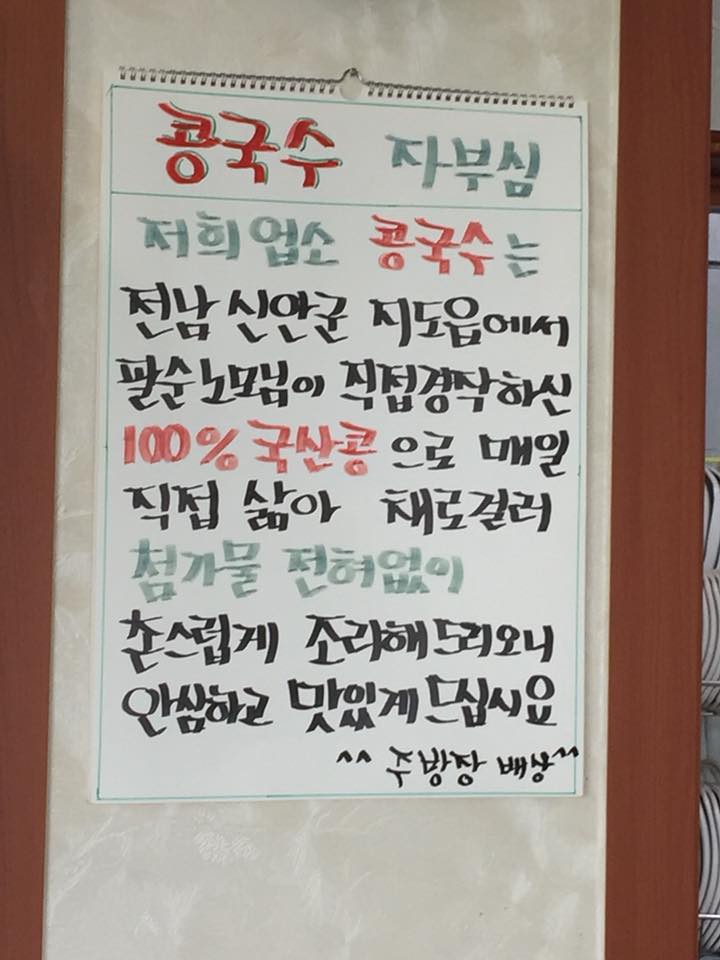 콩국수 자부심
저희 업소 콩국수는
전남 신안군 지도읍에서
팔순노모님이 직접경작하신
100% 국산콩으로 매일
직접 삶아 채로걸러
첨가물 전혀없이
촌스럽게 조리해드리오니
안심하고 맛있게 드십시요
^^ 주방장 배상^^